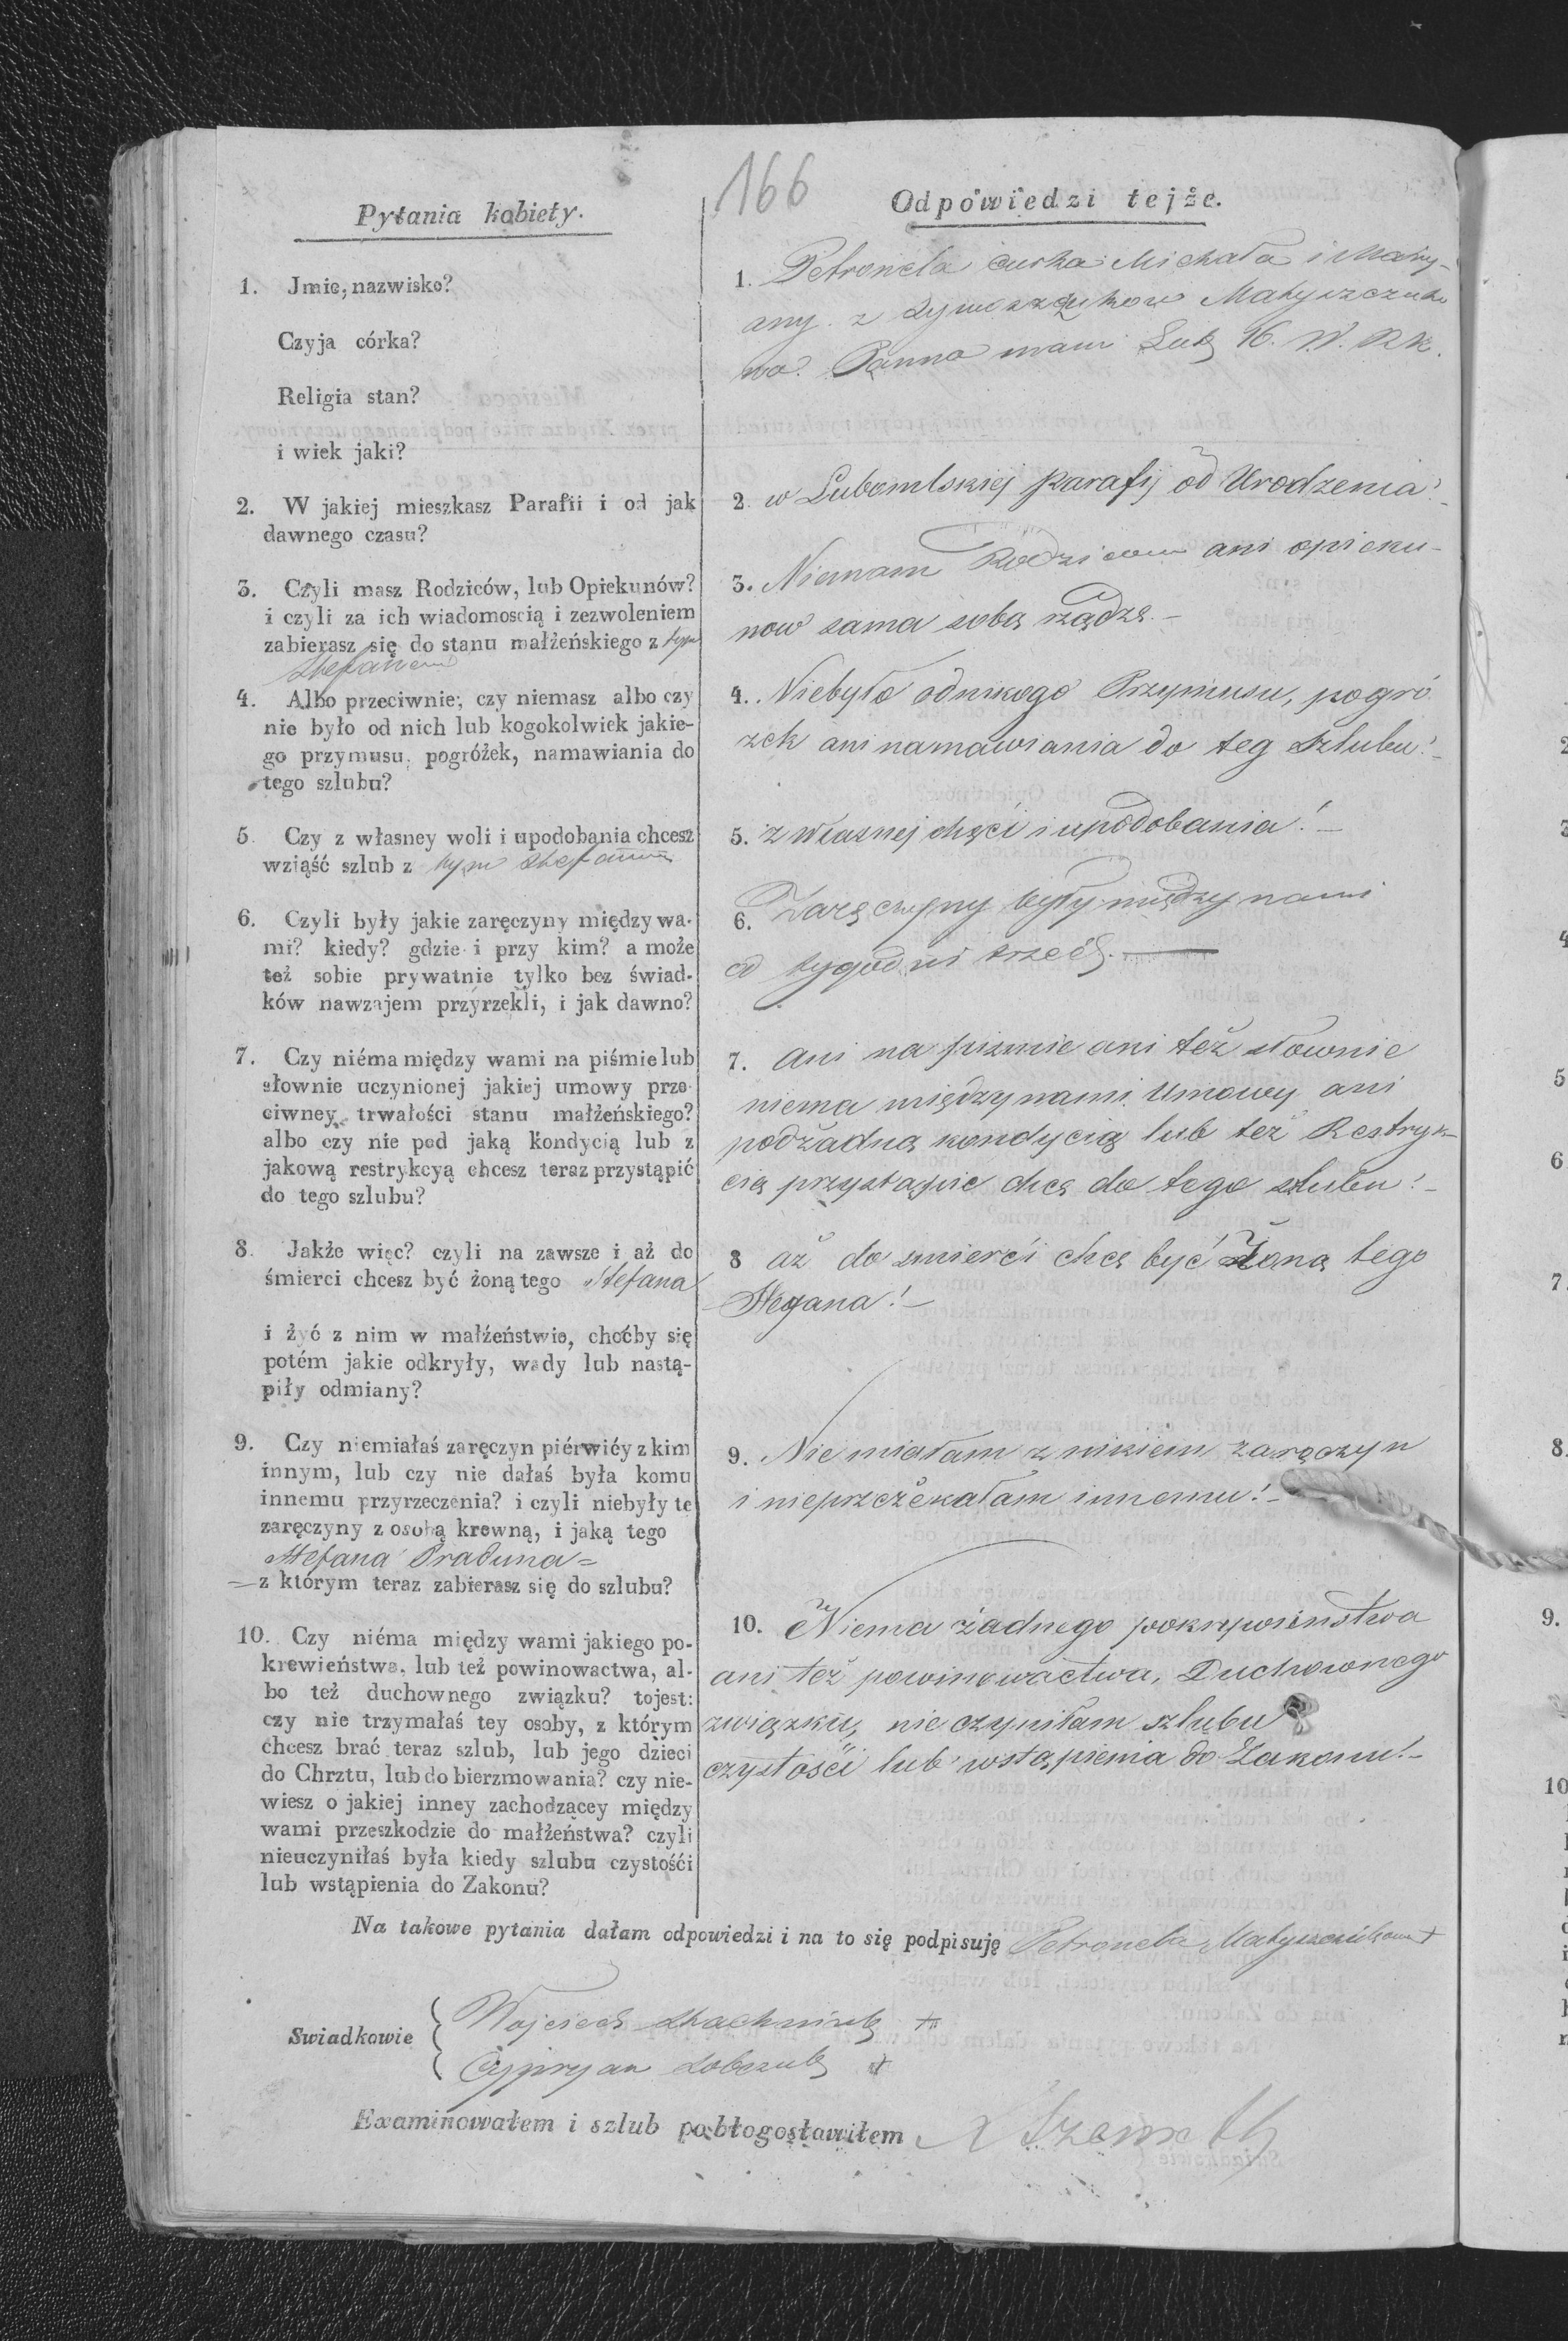 166
Pytania kobiety.
1. Jmie, nazwisko?
Czyja córka?
Religia stan?
i wiek jaki?
2. W jakiej mieszkasz Parafii i od jak
dawnego czasu?
3. Czyli masz Rodziców, lub Opiekunów?
i czyli za ich wiadomoscią i zezwoleniem
zabierasz się do stanu małżeńskiego z tym
Stefanem
4. Albo przeciwnie; czy niemasz albo czy
nie było od nich lub kogokolwiek jakie-
go przymusu, pogróżek, namawiania do
tego szlubu?
5. Czy z własney woli i upodobania chcesz
wziąść szlub z tym Stefanem
6. Czyli były jakie zaręczyny między wa-
mi? kiedy? gdzie i przy kim? a może
też sobie prywatnie tylko bez świad-
ków nawzajem przyrzekli, i jak dawno?
7. Czy niéma między wami na piśmie lub
słownie uczynionej jakiej umowy prze-
ciwney trwałości stanu małżeńskiego?
albo czy nie pod jaką kondycią lub z
jakową restrykcyą chcesz teraz przystąpić
do tego szlubu?
8. Jakże więc? czyli na zawsze i aż do
śmierci chcesz być żoną tego Stefana
i żyć z nim w małżeństwie, choćby się
potém jakie odkryły, wady lub nastą-
piły odmiany?
9. Czy niemiałaś zaręczyn piérwiéy z kim
innym, lub czy nie dałaś była komu
innemu przyrzeczenia? i czyli niebyły te
zaręczyny z osobą krewną, i jaką tego
Stefana Praduna =
= z którym teraz zabierasz się do szlubu?
10. Czy niéma między wami jakiego po-
krewieństwa, lub też powinowactwa, al-
bo też duchownego związku? tojest:
czy nie trzymałaś tey osoby, z którym
chcesz brać teraz szlub, lub jego dzieci
do Chrztu, lub do bierzmowania? czy nie-
wiesz o jakiej inney zachodzącey między
wami przeszkodzie do małżeństwa? czyli
nieuczyniłaś była kiedy szlubu czystośći
lub wstąpienia do Zakonu?
Odpowiedzi tejże.
1. Petronela curka Michała i Mary-
any z Matyszczuko
wa. Panna mam Lat 16. W. RK.
2. w Lubomlskiej parafij od Urodzenia! -
3. Niemam Rodzicow ani opieku-
now sama sobą rządzę. -
4. Niebyło odnikogo Przymusu, pogró
zek ani namawiania do teg szlubu! -
5. z własnej chęci i upodobania! -
6. Zaręczyny były między nami
od tygodni trzech. -
7. ani na pizmie ani też słownie
niema między nami Umowy ani
podżadną kondycią lub też Restryk-
cią przystąpic chcę do tego szlubu! -
8 aż do smierći chcę być Żoną tego
Stefana! -
9. Nie miałam z nikiem zaręczyn
i nieprzeżekałam innemu! -
10. Niema żadnego
ani też powinowactwa, Duchownego
związku, nie czyniłam szlubu
czystośći lub wstąpienia do Zakonu! -
Na takowe pytania dałam odpowiedzi i na to się podpisuję Petronela +
Swiadkowie
Wojciech +
Cypryan +
Examinowałem i szlub pobłogosławiłem
2
3
4
5
6
7.
8.
9.
10